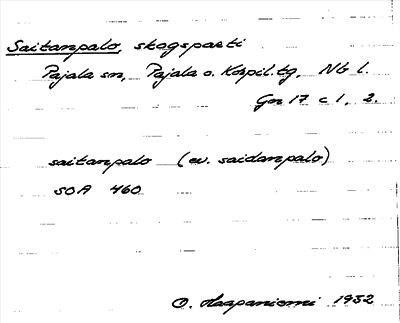 Saitanpalo, skogsparti
Pajala sn, Pajala o. Korpil. tg, Nb l.
Gen 17 c 1, 2.
saitanpalo (ev. saidanpalo)
SOA 460
O. Haapaniemi 1932